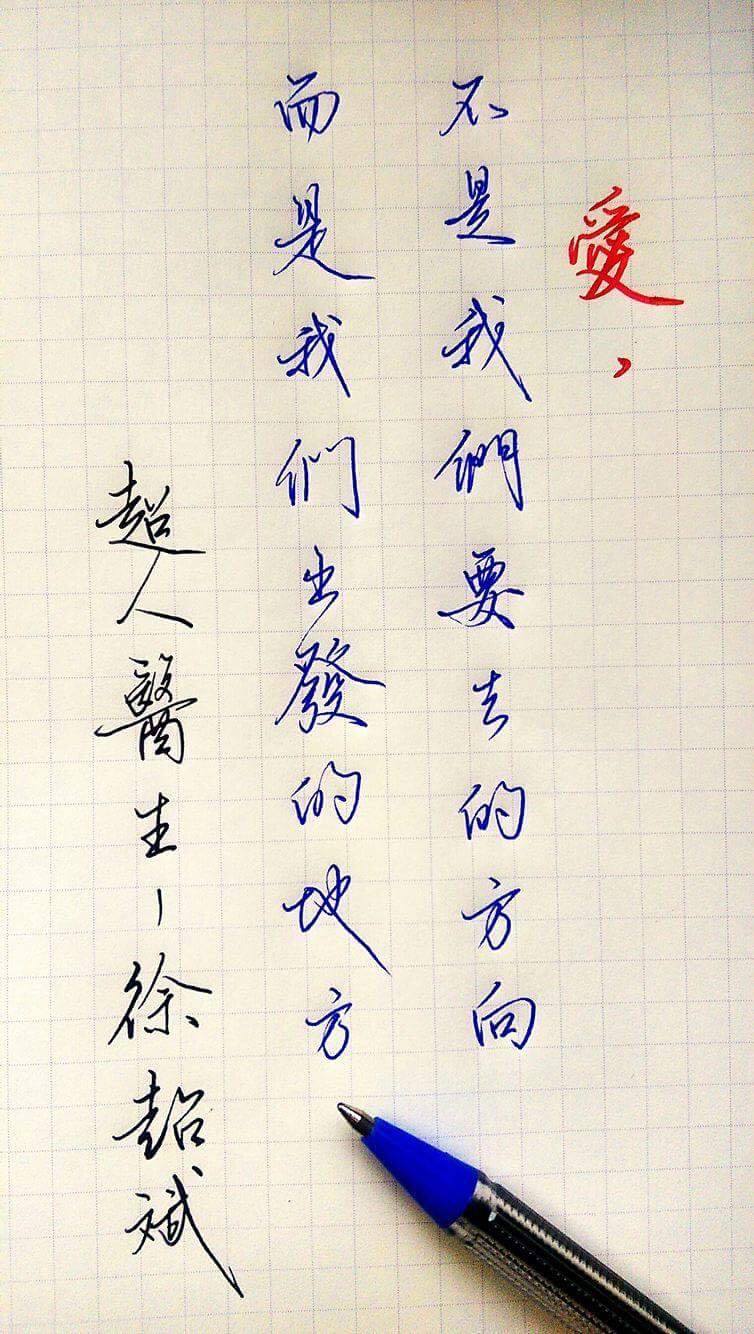 愛，
不是我們要去的方向
而是我們出發的地方
超人醫生-徐超斌